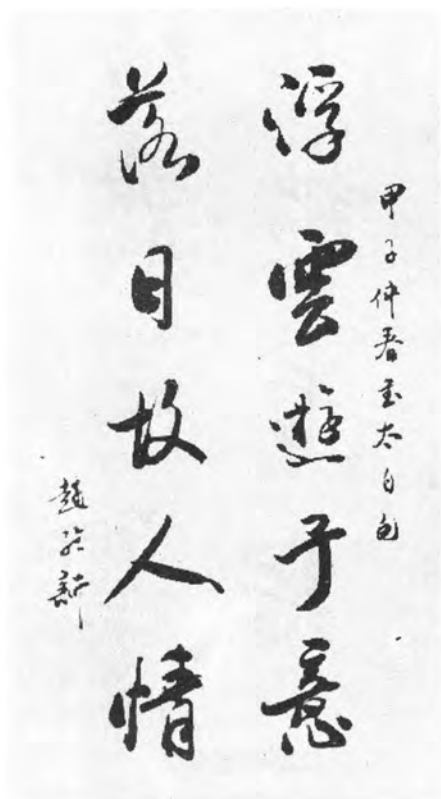 甲子仲春書太白句
浮雲遊子意
落日故人情
趙